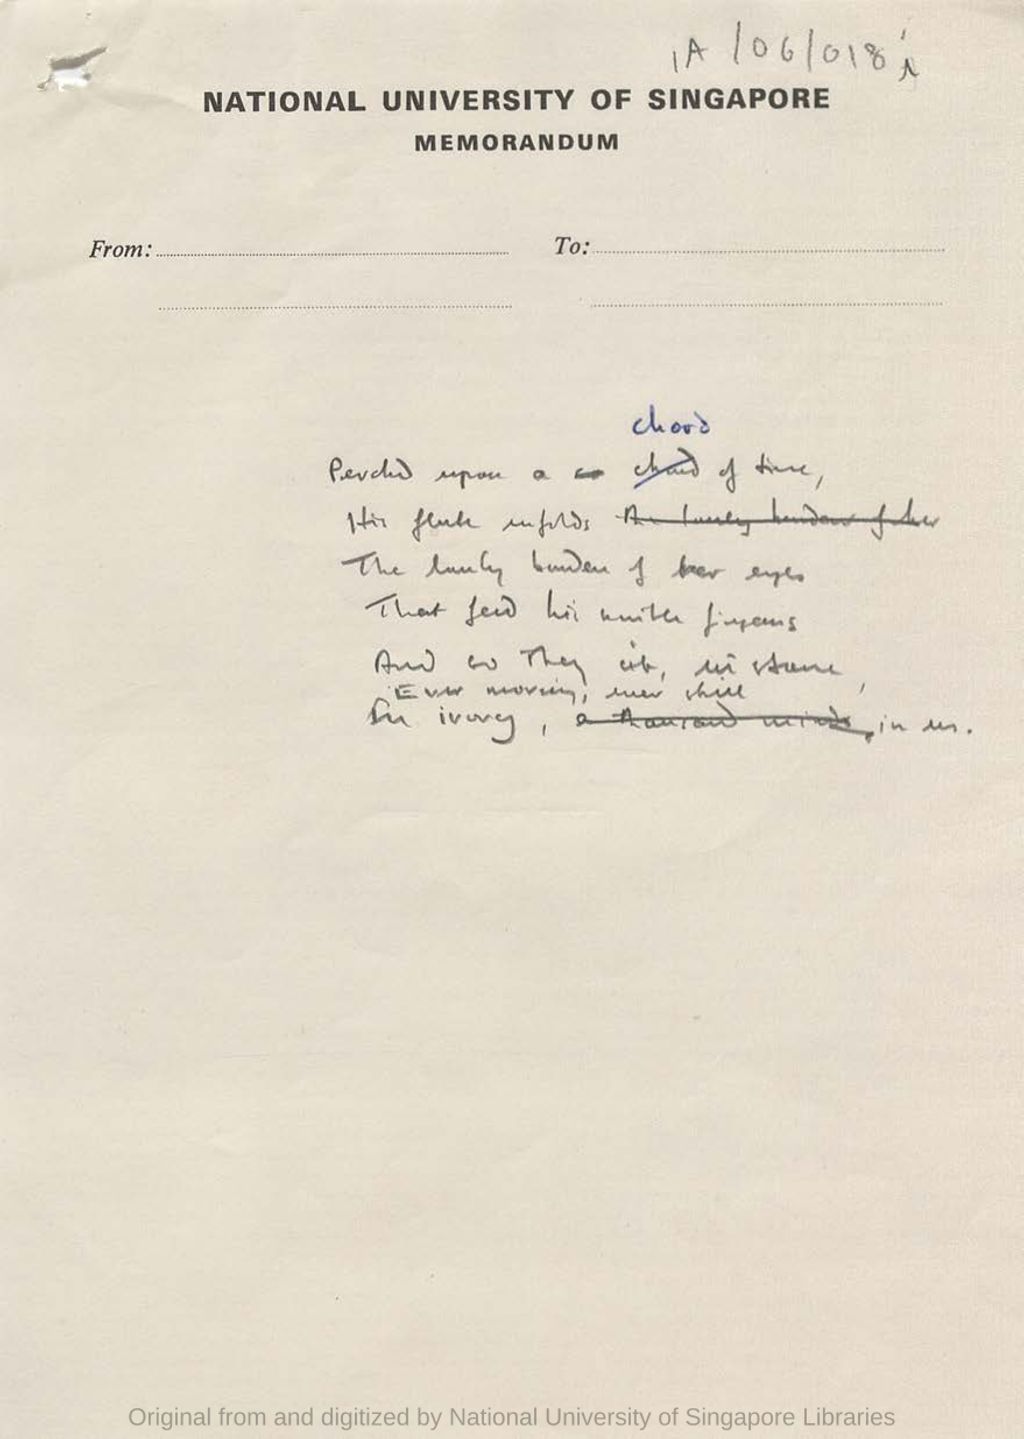 1A/06/018
NATIONAL UNIVERSITY OF SINGAPORE
MEMORANDUM
From: To:
chord
Perched upon a chord of time,
His flute unfolds the lonely burden of her
The lonely burden of her eyes
That feed his fingers
And so they sit, in stone,
Ever moving, ever still
In ivory, a thousand minds, in us.
Original from and digitized by National University of Singapore Libraries